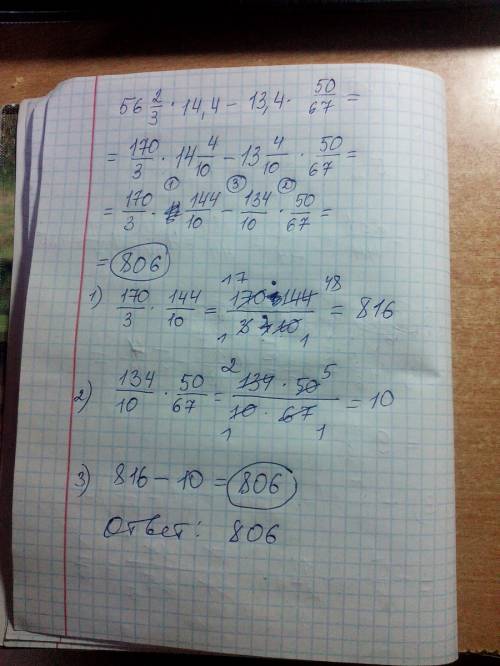 56 2/3 · 14,4 – 13,4 · 50/67 =
= 170/3 · 14 4/10 – 13 4/10 · 50/67 =
① ③ ②
= 170/3 · 144/10 – 134/10 · 50/67 =
= 806
1) 170/3 · 144/10 = 17 170 · 144 48 / 1 3 · 10 1 = 816
2) 134/10 · 50/67 = 2 134 · 50 5 / 1 10 · 67 1 = 10
3) 816 – 10 = 806
Ответ: 806